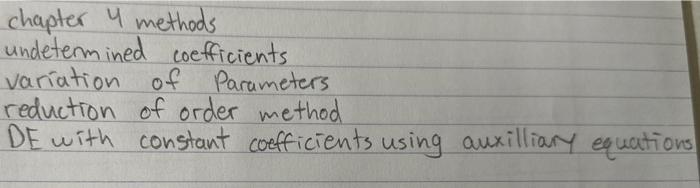 chapter 4 methods
undetermined coefficients
variation of Parameters
reduction of order method
DE with constant coefficients using auxilliary equations